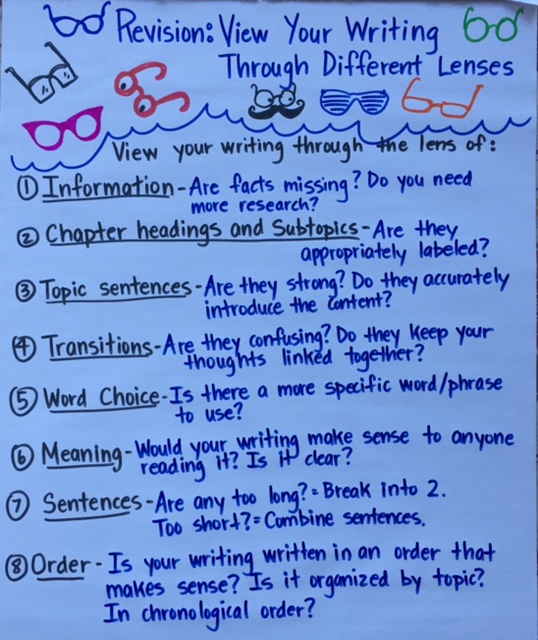 Revision: View Your Writing
Through Different Lenses
View your writing through the lens of:
① Information - Are facts missing? Do you need
more research?
② Chapter headings and Subtopics - Are they
appropriately labeled?
③ Topic sentences - Are they strong? Do they accurately
introduce the content?
④ Transitions - Are they confusing? Do they keep your
thoughts linked together?
⑤ Word Choice - Is there a more specific word/phrase
to use?
⑥ Meaning - Would your writing make sense to anyone
reading it? Is it clear?
⑦ Sentences - Are any too long? = Break into 2.
Too short? = Combine sentences.
⑧ Order - Is your writing written in an order that
makes sense? Is it organized by topic?
In chronological order?